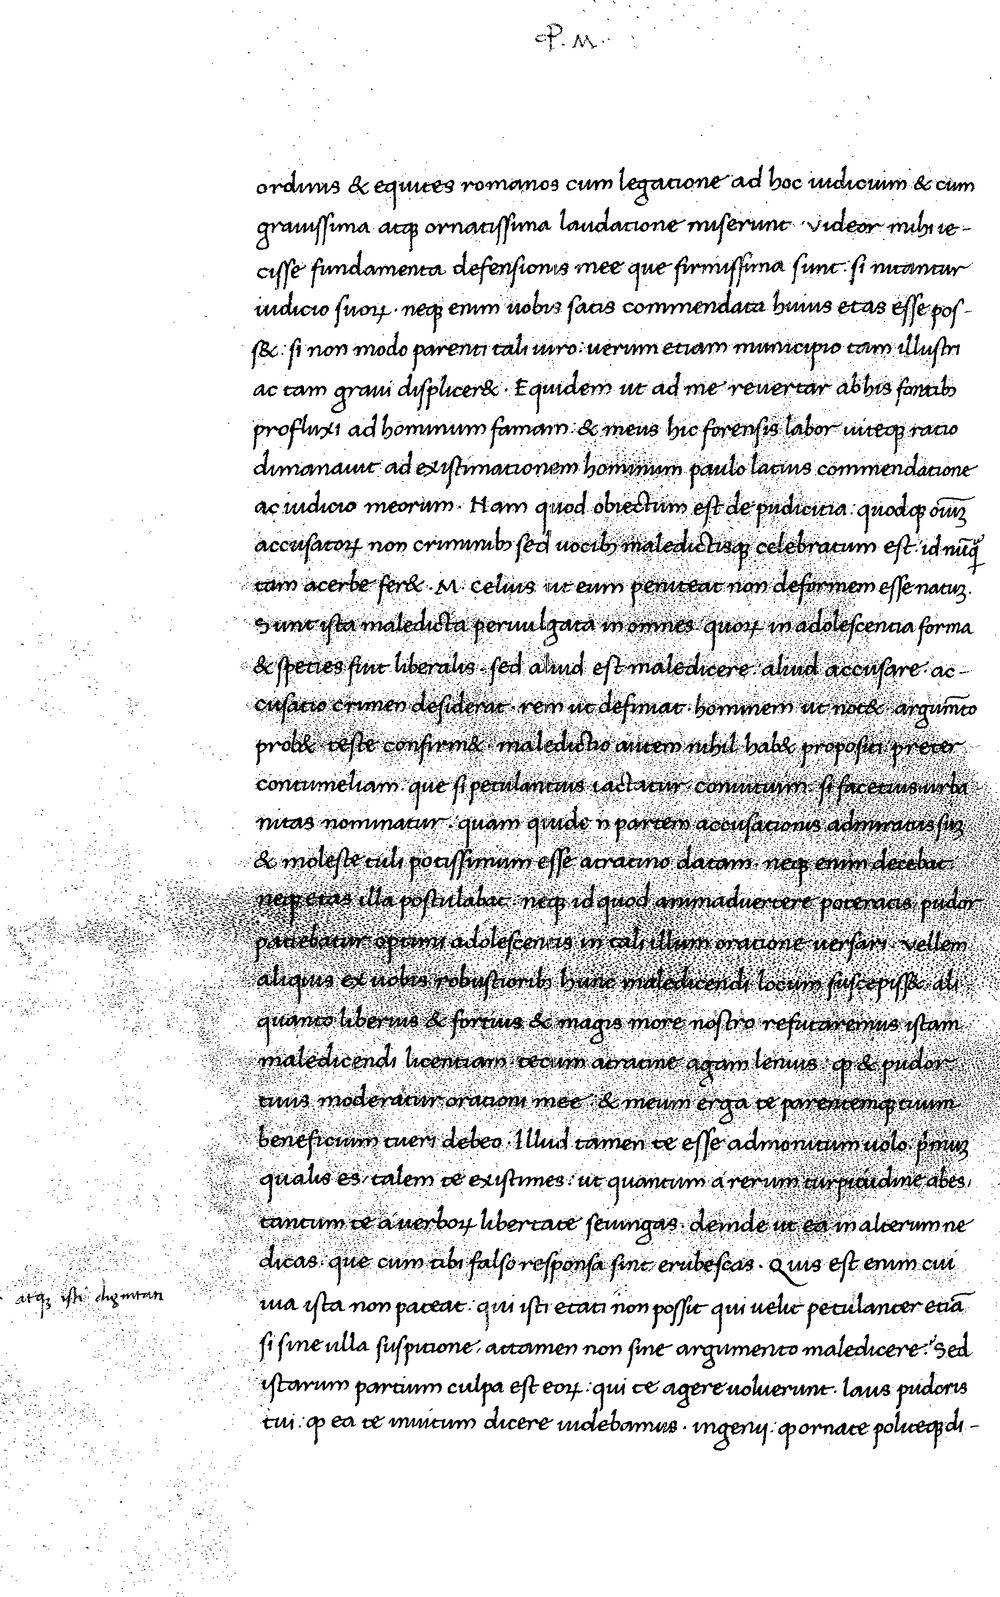 P. M.
ordinis & equites romanos cum legatione ad hoc iudicium & cum
grauissima atqꝫ ornatissima laudatione miserunt. Videor mihi ie-
cisse fundamenta defensionis mee que firmissima sunt: si nitantur
iudicio suoꝝ. neqꝫ enim uobis satis commendata huius etas esse pos-
s&: si non modo parenti tali uiro: uerum etiam municipio tam illustri
ac tam graui displicer&. Equidem ut ad me reuertar ab his fontibꝫ
profluxi ad hominum famam: & meus hic forensis labor uiteqꝫ ratio
dimanauit ad existimationem hominum paulo latius commendatione
ac iudicio meorum. Nam quod obiectum est de pudicitia: quodqꝫ oīuꝫ
accusatoꝝ non criminibꝫ sed uocibꝫ maledictisqꝫ celebratum est. id nūq̄ꝫ
tam acerbe fer& .M. Celius ut eum peniteat non deformem esse natuꝫ.
Sunt ista maledicta peruulgata in omnes quoꝝ in adolescentia forma
& species fiut liberalis. sed aliud est maledicere: aliud accusare. ac-
cusatio crimen desiderat. rem ut definiat. hominem ut not& argum̄to
prob& teste confirm&. maledictio autem nihil hab& propositi preter
contumeliam. que si petulantius iactatur conuitium: si facetius urba
nitas nominatur. quam quidē n partem accusationis admiratus suꝫ
& moleste tuli potissimum esse atratino datam. neqꝫ enim decebat:
neqꝫ etas illa postulabat: neqꝫ id quod animaduertere poteratis pudor
patiebatur optimi adolescentis in tali illum oratione uersari. Vellem
aliquis ex uobis robustioribꝫ hunc maledicendi locum suscepiss& ali
quanto liberius & fortius & magis more nostro refutaremus istam
maledicendi licentiam. tecum atratine agam lenius: ꝙ & pudor
tuus moderatur orationi mee: & meum erga te parentemqꝫ tuum
beneficium tueri debeo. Illud tamen te esse admonitum uolo p̄muꝫ
qualis es: talem te existimes: ut quantum a rerum turpitudine abes,
tantum te a uerboꝝ libertate seiungas. deinde ut ea in alterum ne
dicas. que cum tibi falso responsa sint erubescas. Quis est enim cui
atqꝫ isti dignitati
uia ista non pateat: qui isti etati non possit qui uelit petulanter etiā
si sine ulla suspitione, attamen non sine argumento maledicere. Sed
istarum partium culpa est eoꝝ: qui te agere uoluerunt. laus pudoris
tui: ꝙ ea te inuitum dicere uidebamus. ingenij: ꝙ ornate politeqꝫ di-